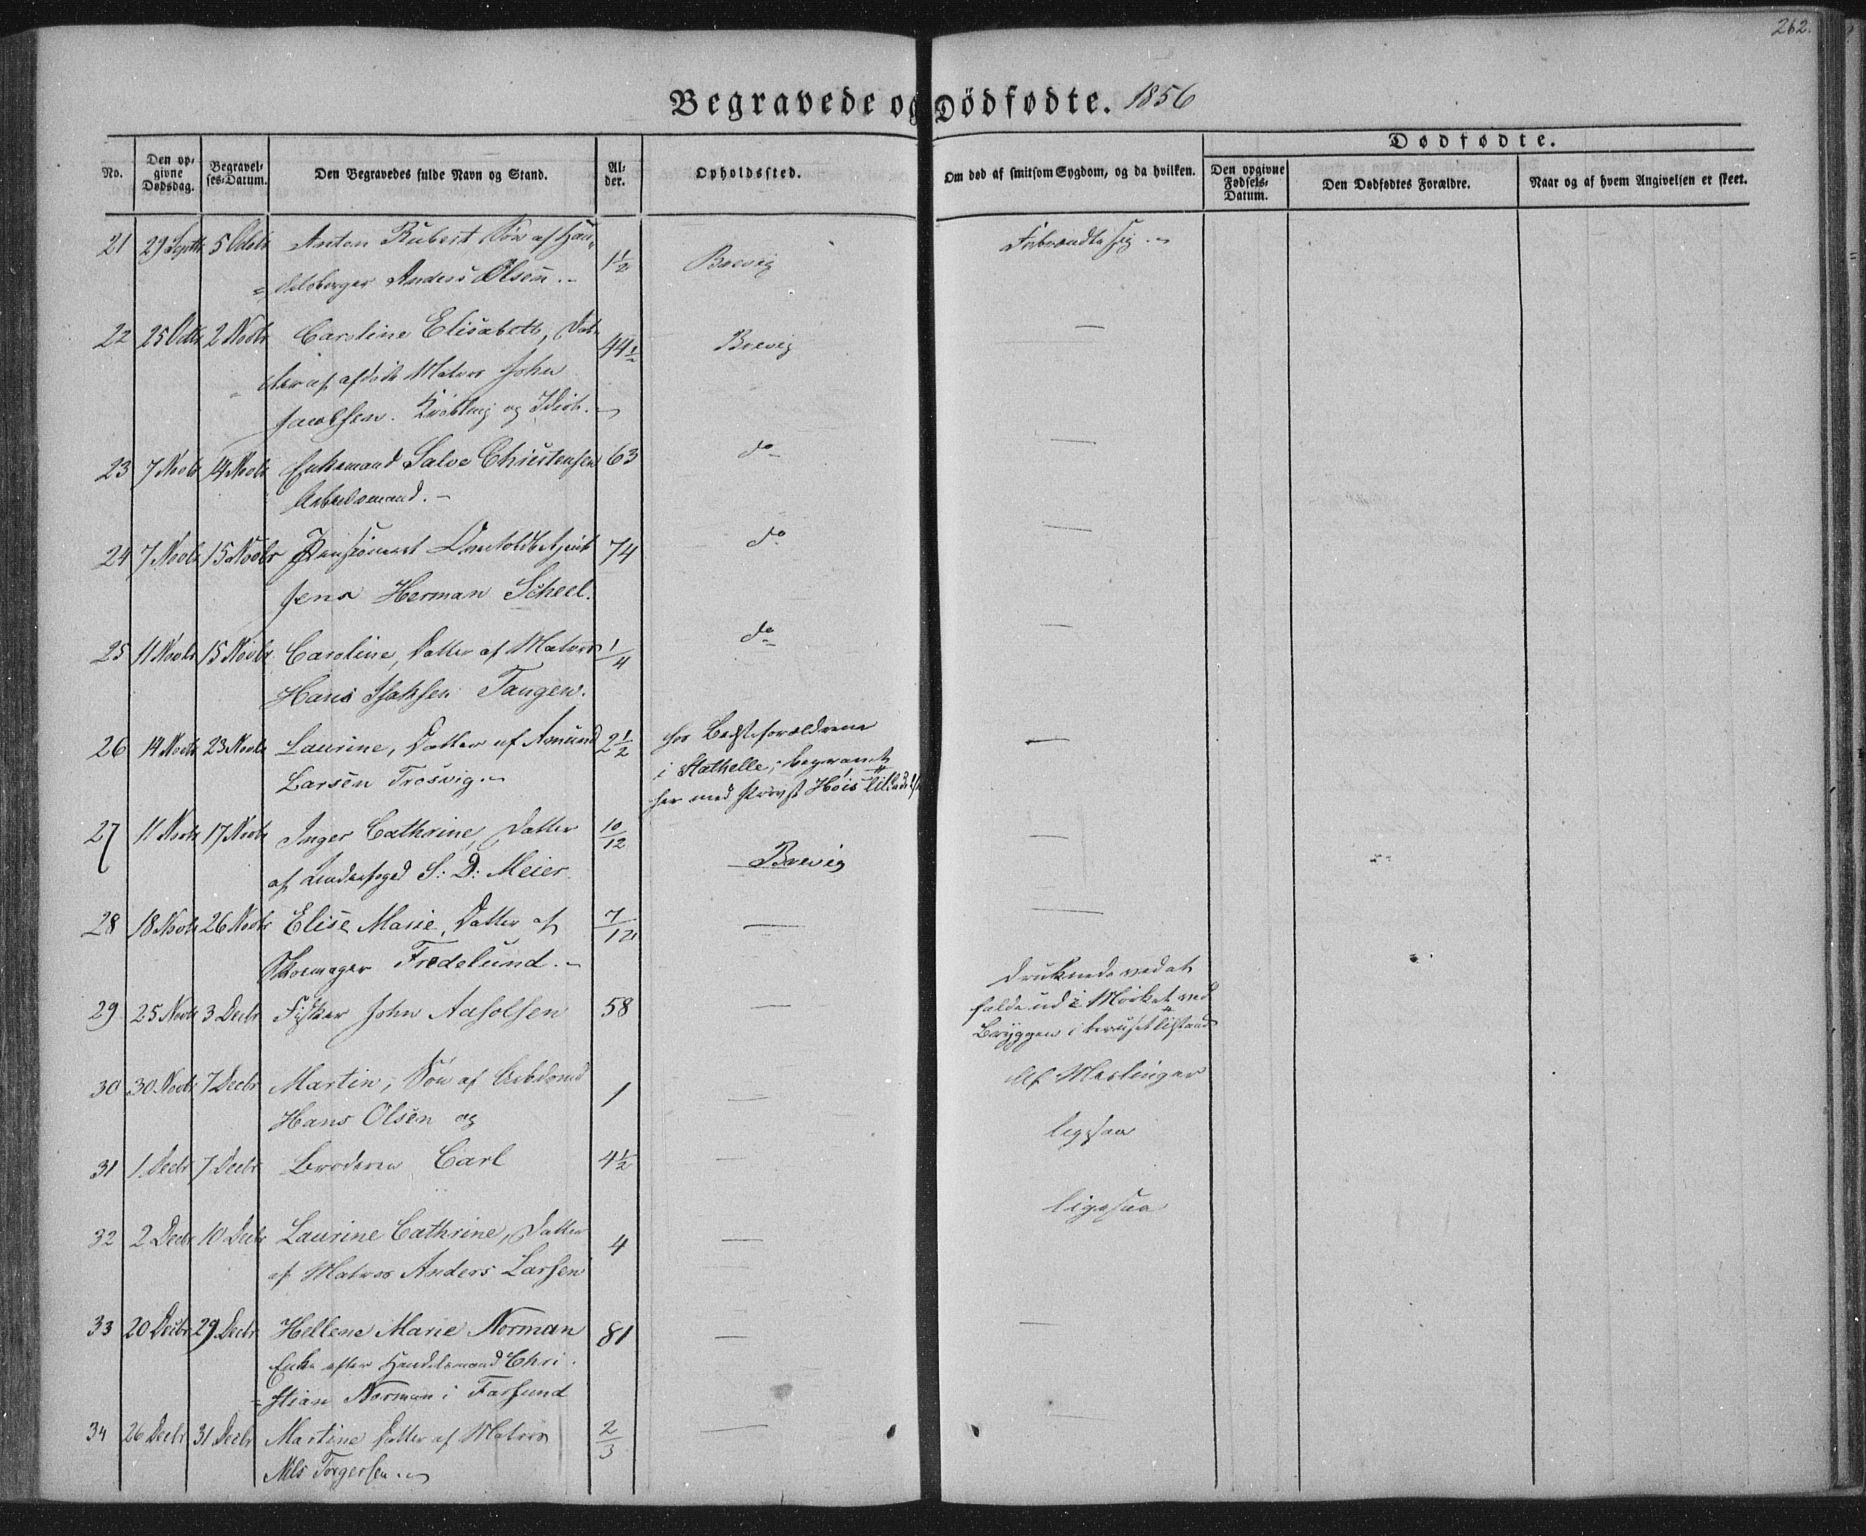 262.
Begravede og Dödfødte. 1856
No.
Den opgivne Dødsdag.
Begravelses-Datum.
Den Begravedes fulde Navn og Stand.
Alder.
Opholdssted.
Om død af smitsom Sygdom, og da hvilken.
Dødfødte.
Den opgivne Fødsels-Datum.
Den Dødfødtes Forældre.
Naar og af hvem Angivelsen er skeet.
21 29 Septb 5 Octobr Anton Robert Søn af Han= 1½ Brevig Forbrændte sig.
=delsborger Anders Olsen.
22 25 Octb 2 Novbr Caroline Elisabeth, Dat= 44½ Brevig —
ter af afdøde Matros John
Jacobsen. Krøbling og Idiot.
23 7 Novbr 14 Novbr Enkemand Salve Christensen 63 do —
Arbeidsmand.
24 7 Novbr 15 Novbr Pensioneret 74 do —
Jens Herman Scheel.
25 11 Novbr 15 Novbr Caroline, Datter af Matros 1/4 do —
Hans Isaksen Tangen.
26 14 Novbr 23 Novbr Laurine, Datter af Amund 2½ hos Bedsteforældrene —
Larsen Trosvig. i Stathelle; begravet
her med Provst Høis Tilladelse
27 11 Novbr 17 Novbr Inger Cathrine, Datter 10/12 Brevig —
af Underfoged S: D: Meier.
28 18 Novbr 26 Novbr Elise Marie, Datter af 7/12 — —
Skomager Fredelund.
29 25 Novbr 3 Decbr Fisker John Aasolsen 58 — Druknede ved at
falde ud i Mørket ved
Bryggen i beruset Tilstand
30 30 Novbr 7 Decbr Martin, Søn af Arbdsmd 1 — Af Meslinger
Hans Olsen og
31 1 Decbr 7 Decbr Broderen Carl 4½ — ligesaa
32 2 Decbr 10 Decbr Laurine Cathrine, Datter 4 — ligesaa
af Matros Anders Larsen
33 20 Decbr 29 Decbr Hellene Marie Norman 81 — —
Enke efter Handelsmand Chri=
=stian Norman i Farsund
34 26 Decbr 31 Decbr Martine Datter af Matros 2/3 — —
Nils Torgersen.